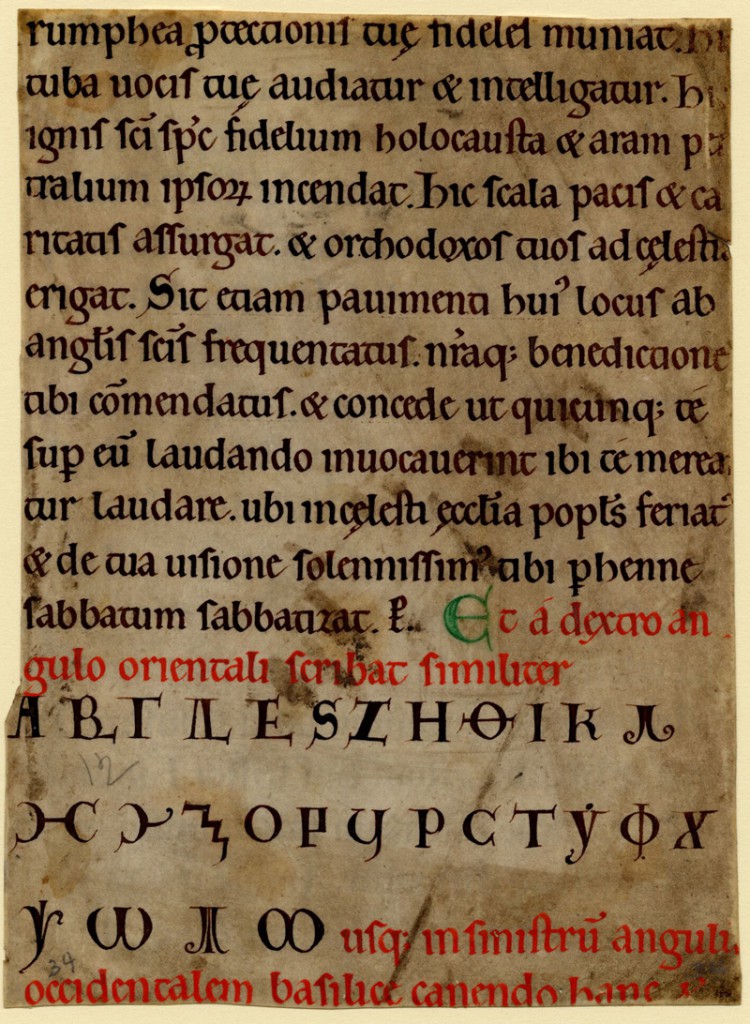 rumphea ꝓtectionis tuę fideles muniat. Hi
tuba uocis tuę audiatur & intelligatur. Hi
ignis sc̄i sp̄c fidelium holocausta & aram
tralium ipsoꝝ incendat. Hic scala pacis & ca
ritatis assurgat. & orthodoxos tuos ad cęlesti
erigat. Sit etiam pauimenti hui᾽ locus ab
anglis sc̄is frequentatus. nr̄aq; benedictione
tibi cōmendatus. & concede ut quicunq; te
suꝑ eū laudando inuocauerint ibi te merea
tur laudare. ubi in cęlesti ęccl̄ia popl̄s feriat᾽
& de tua uisione solennissim᾽ tibi ꝑhenne
sabbatum sabbatizat. Et a dextro an
gulo orientali scribat similiter
Α Β Γ Δ Ε S Ζ Η Θ Ι Κ Λ
Ο Π Ϥ Ρ C Τ Υ Φ Χ
Ψ Ω
usq; in sinistrū anguli
occidentalem basilice canendo hanc
34